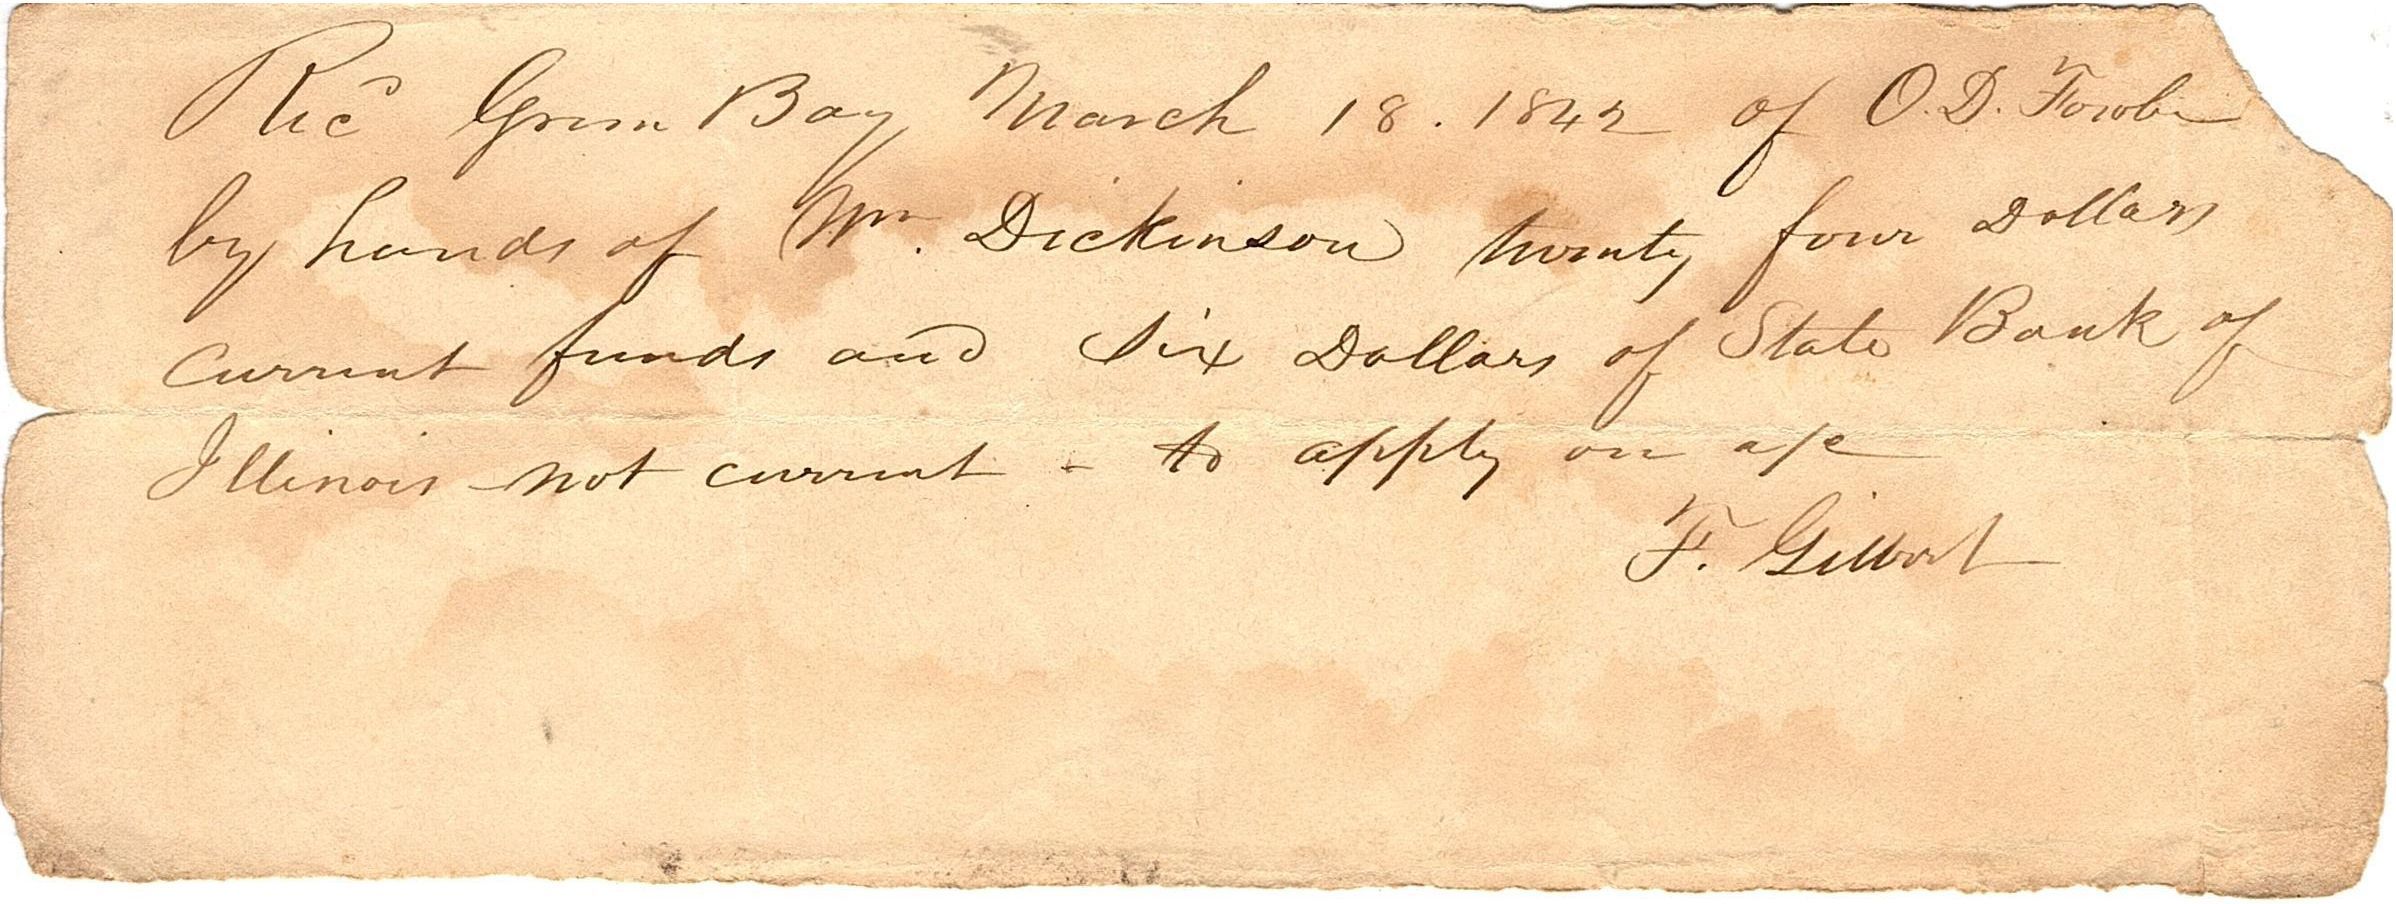 Rec'd Green Bay March 18. 1842 of O. D. Fowler
by hands of Wm. Dickinson twenty four Dollars
current funds and Six Dollars of State Bank of
Illinois not current - to apply on a/c
F. Gilbert